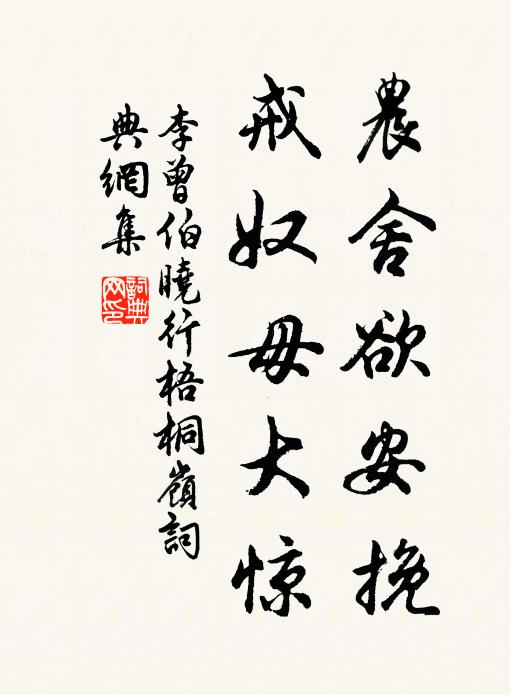 農舍欲安挽
戒奴毋大惊
李曾伯曉行梧桐嶺詞
典網集
詞典网印